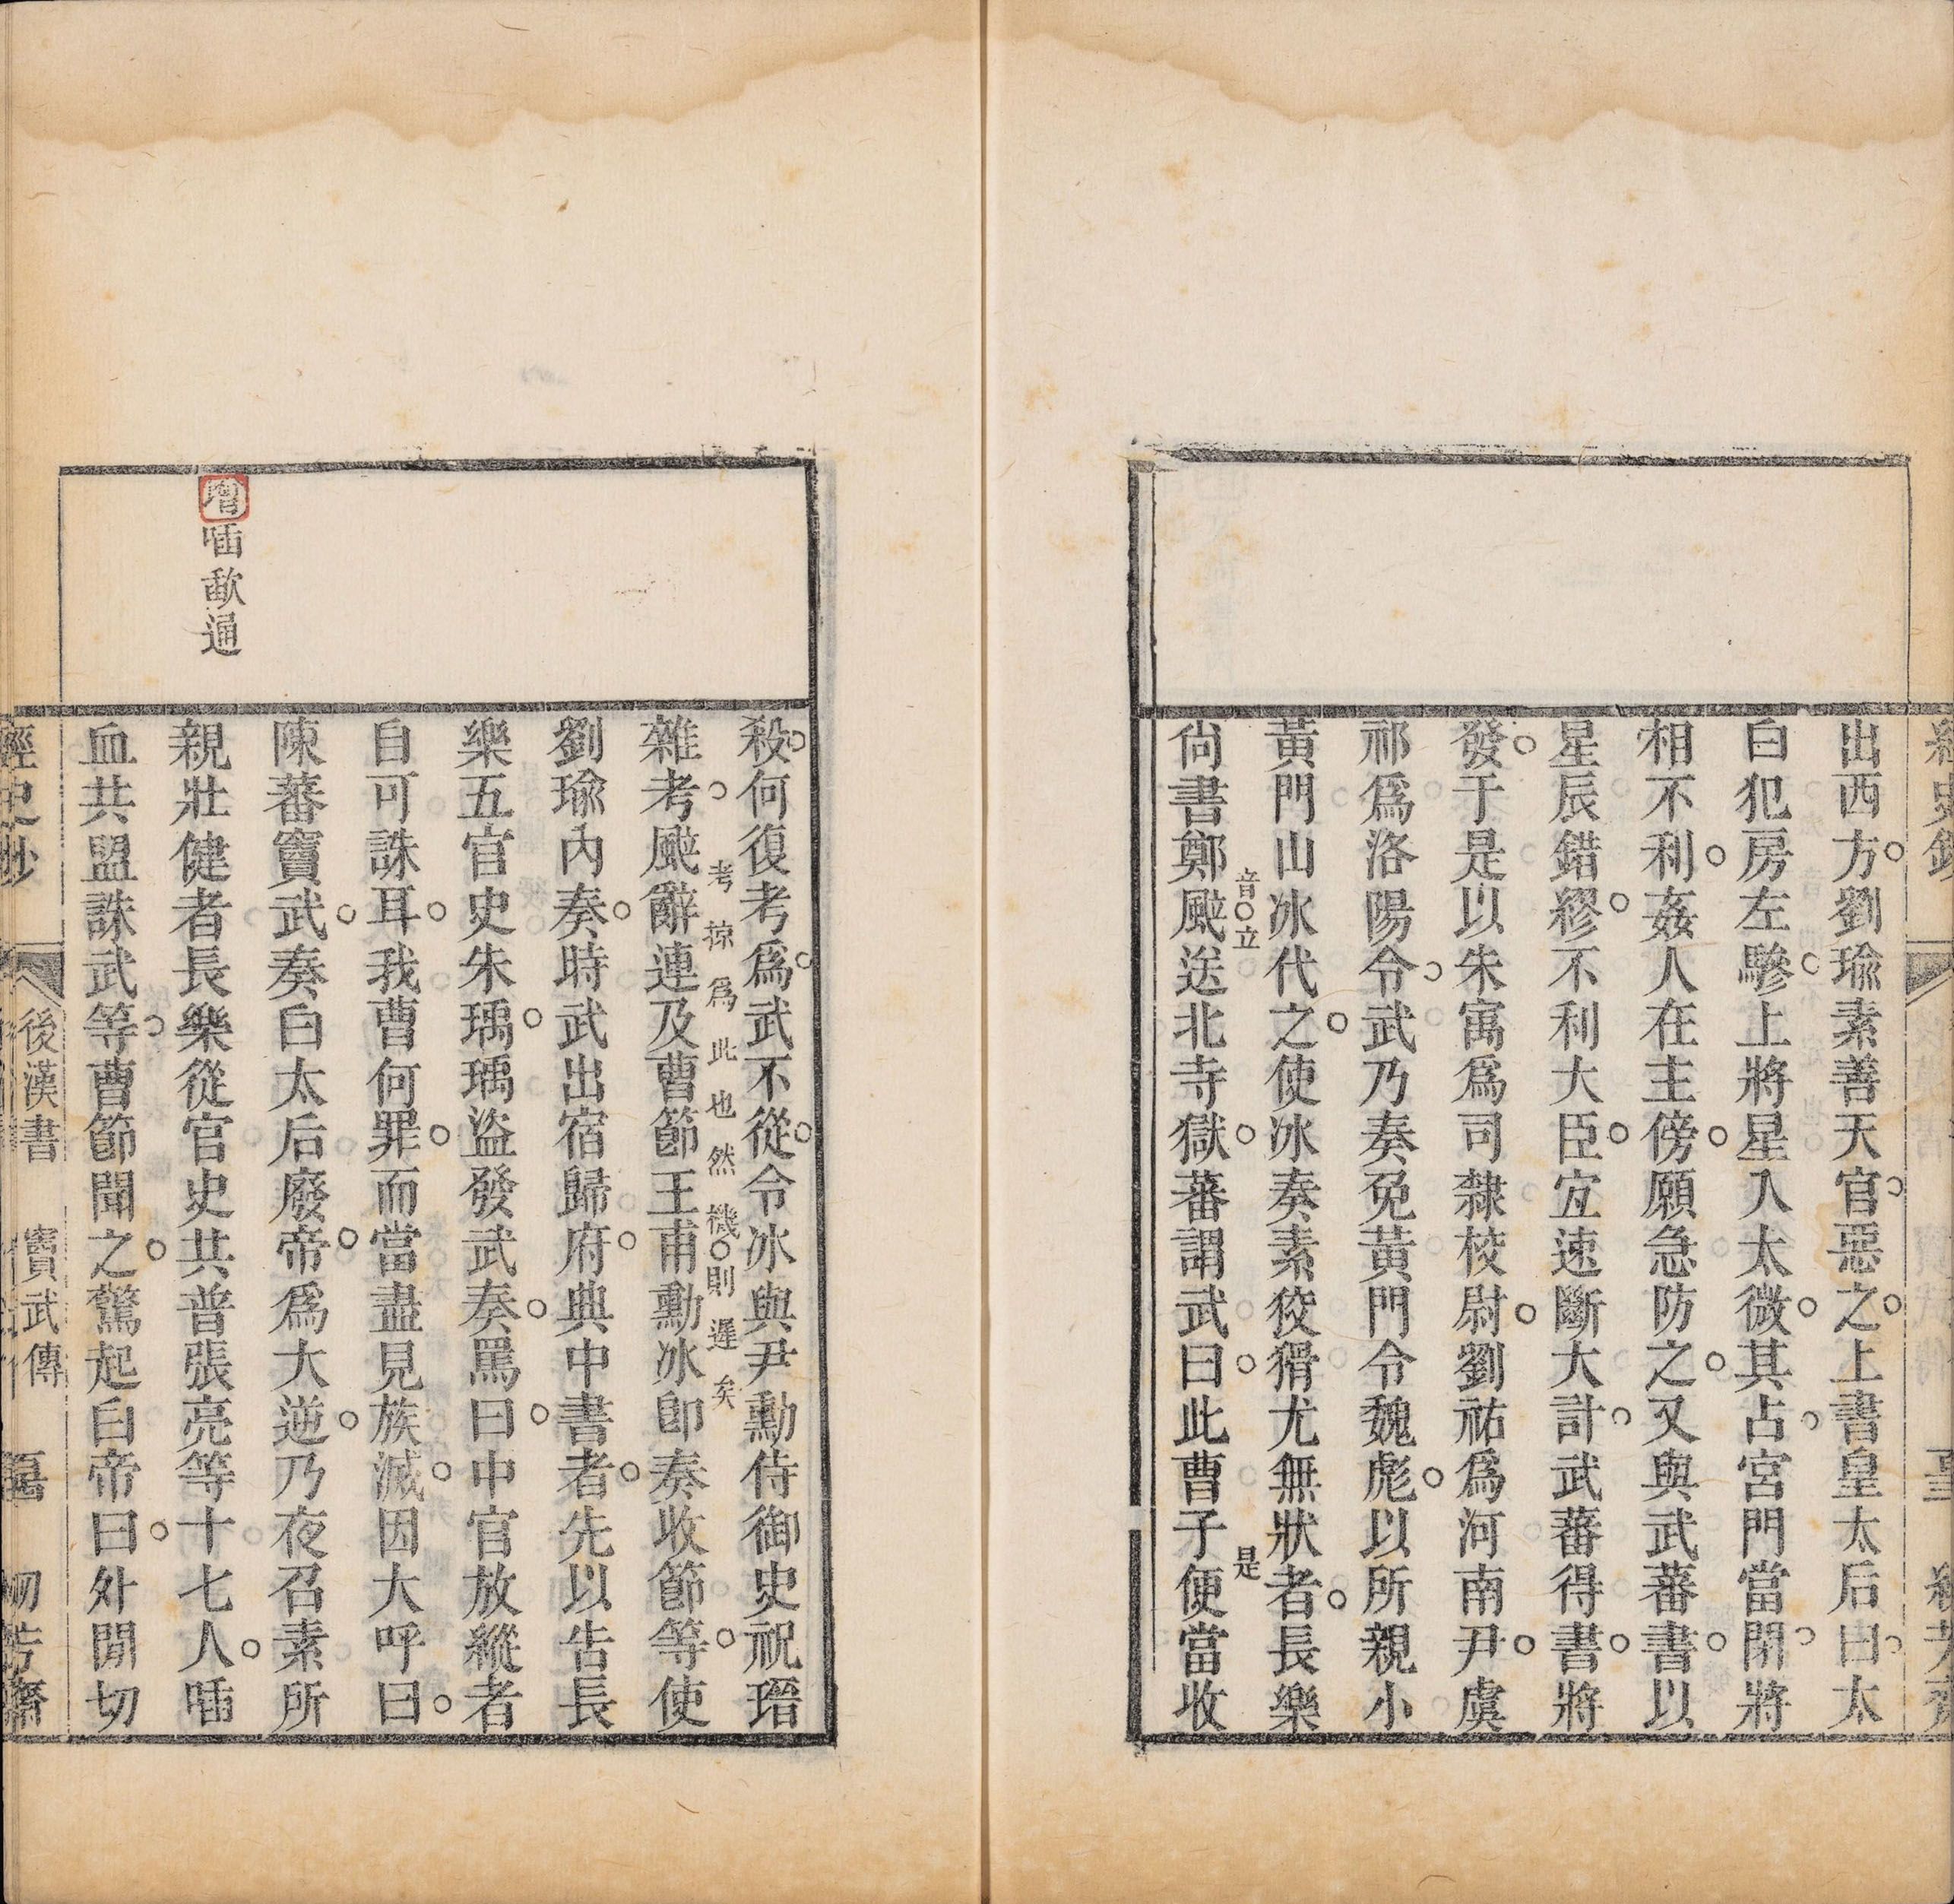 出西方劉瑜素善天官惡之上書皇太后曰太
白犯房左驂上將星入太微其占宮門當閉將
相不利姦人在主傍願急防之又與武蕃書以
星辰錯繆不利大臣宜速斷大計武蕃得書將
發于是以朱寓爲司隸校尉劉祐爲河南尹虞
祁爲洛陽令武乃奏免黃門令魏彪以所親小
黃門山冰代之使冰奏素狡猾尤無狀者長樂
音立
是
尙書鄭颯送北寺獄蕃謂武曰此曹子便當收
殺何復考爲武不從令冰與尹勳侍御史祝瑨
考掠爲此也然機則遲矣
雜考颯辭連及曹節王甫勳冰卽奏收節等使
劉瑜內奏時武出宿歸府典中書者先以告長
樂五官史朱瑀瑀盜發武奏罵曰中官放縱者
自可誅耳我曹何罪而當盡見族滅因大呼曰
陳蕃竇武奏白太后廢帝爲大逆乃夜召素所
增喢歃通
親壯健者長樂從官史共普張亮等十七人喢
血共盟誅武等曹節聞之驚起白帝曰外閒切
經史鈔 後漢書 竇武傳